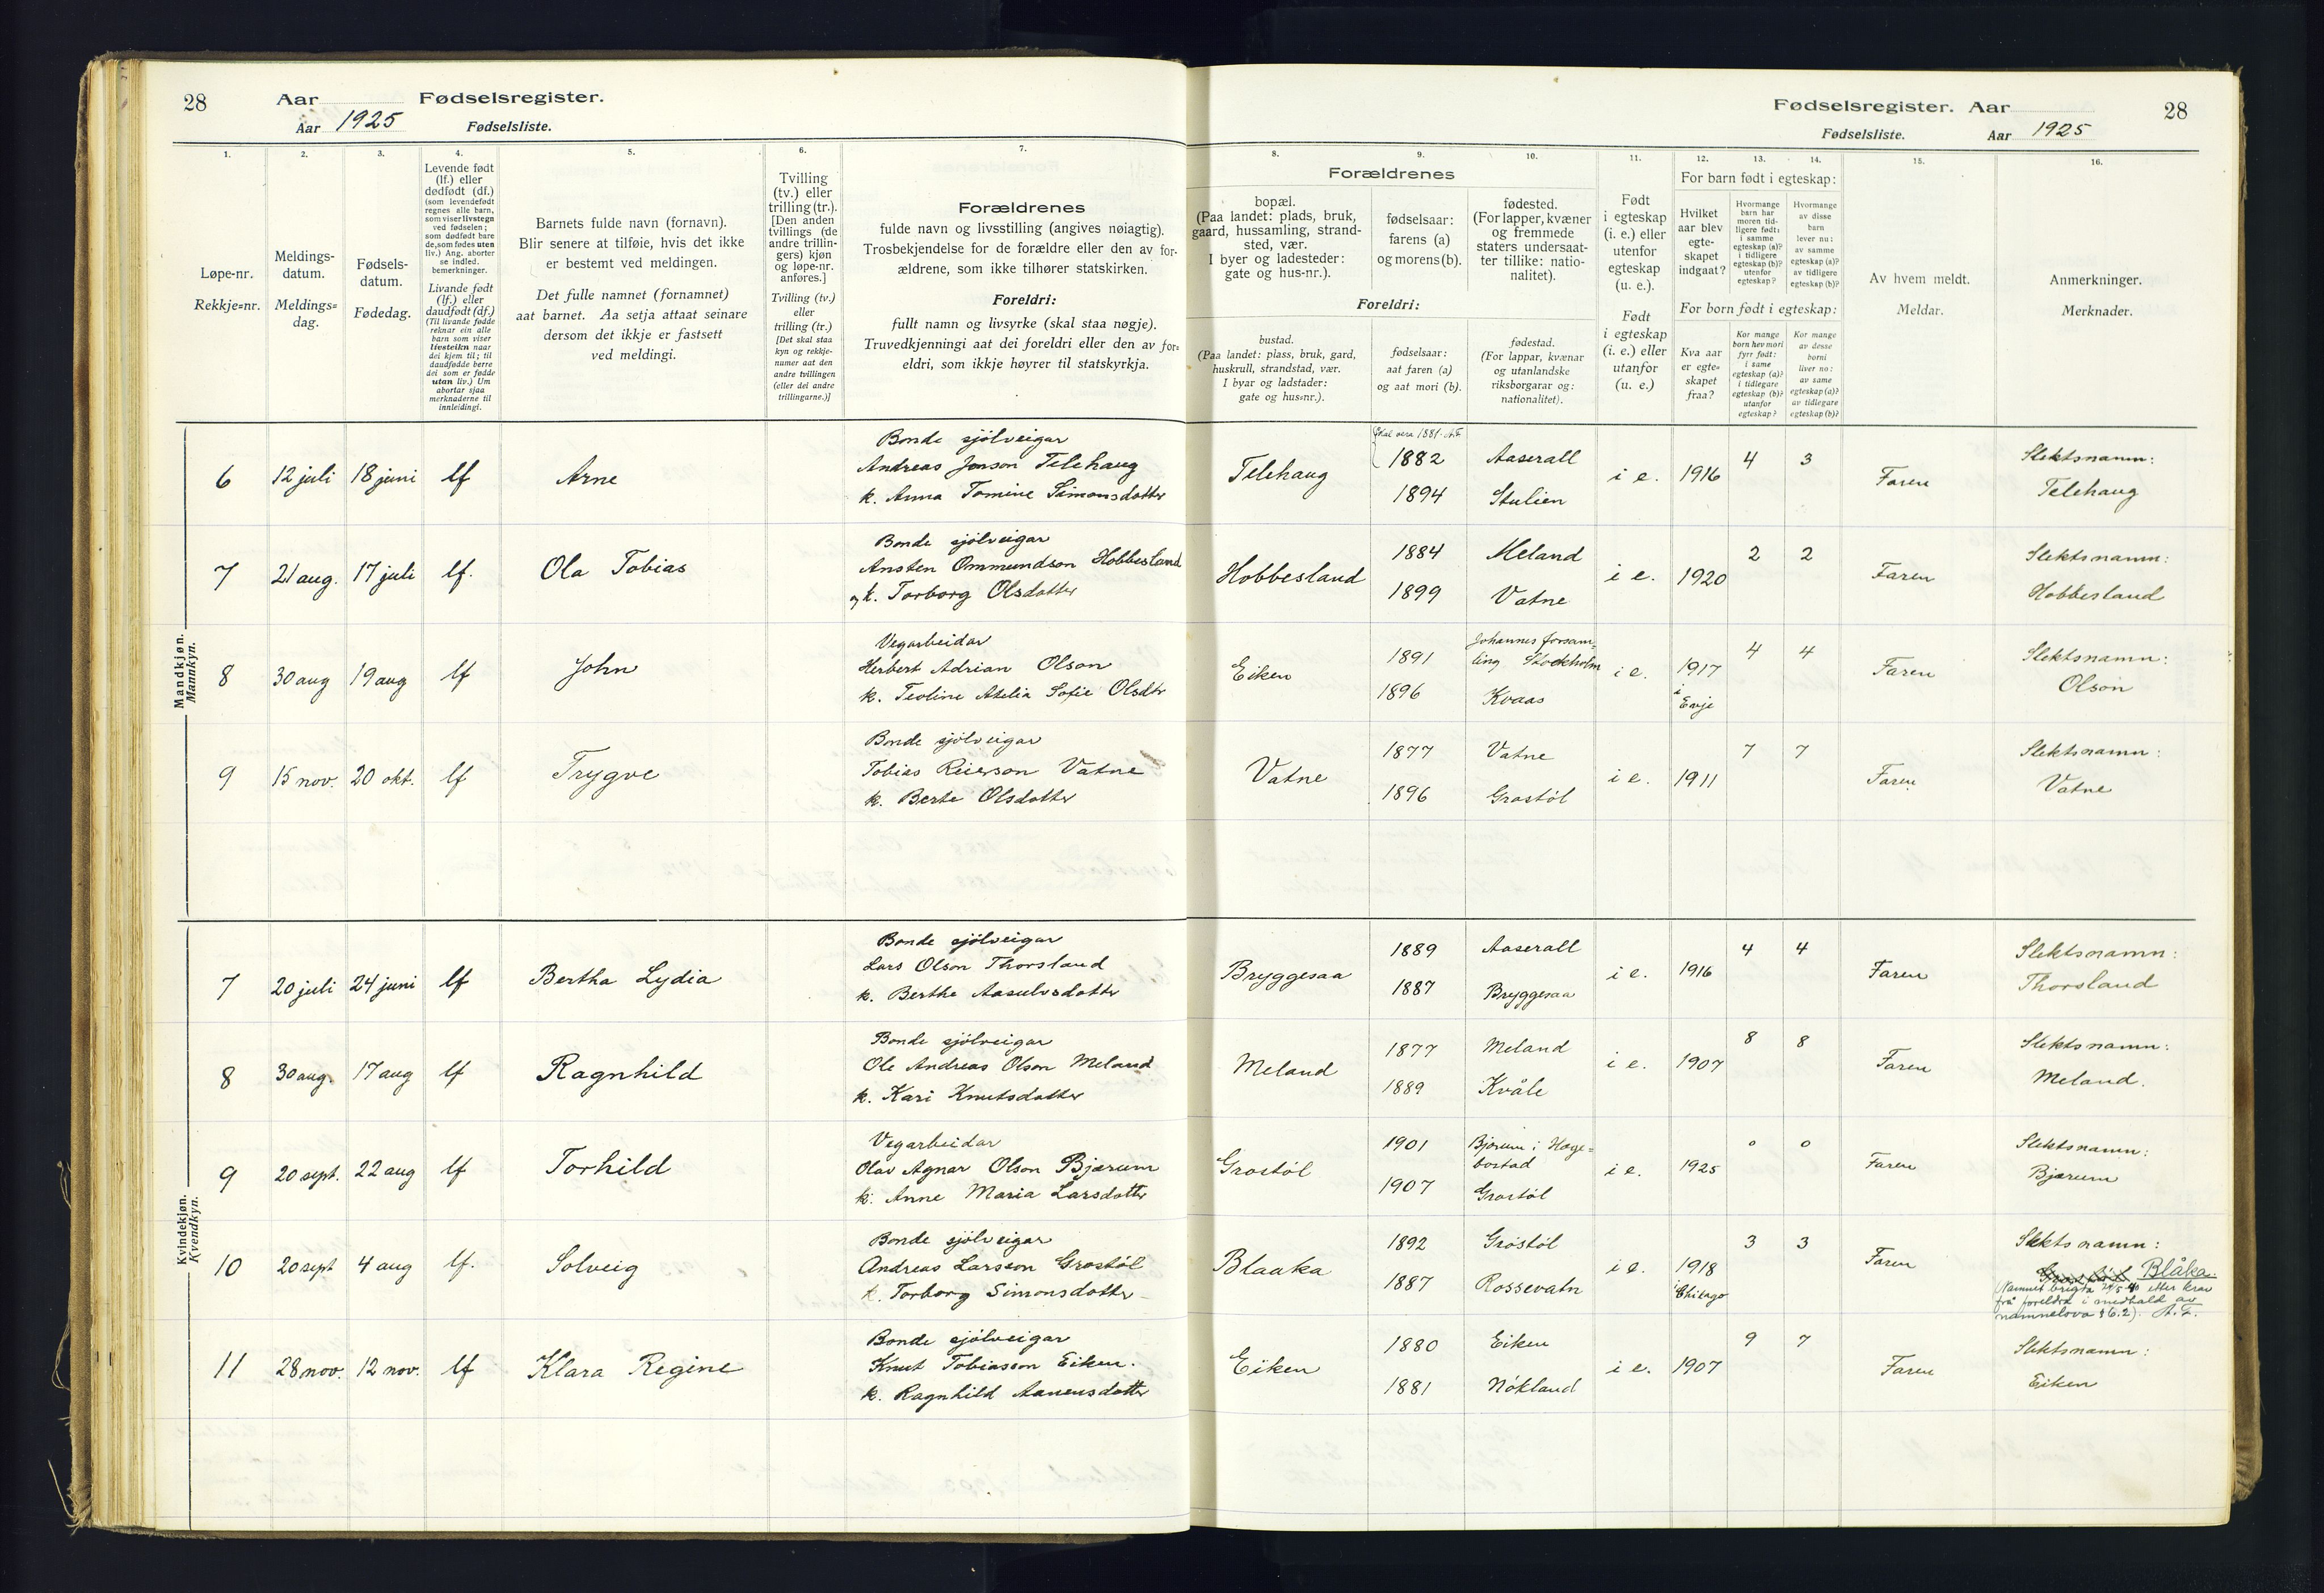 28
Aar Fødselsregister.
Aar 1925 Fødselsliste.
Fødselsregister. Aar
28
Fødselsliste. Aar 1925
1.
Løpe-nr.
Rekkje=nr.
2.
Meldings-
datum.
Meldings=
dag.
3.
Fødsels-
datum.
Fødedag.
4.
Levende født
(lf.) eller
dødfødt (df.)
(som levendefødt
regnes alle barn,
som viser livstegn
ved fødselen;
som dødfødt bare
de, som fødes uten
liv.) Ang. aborter
se indled.
bemerkninger.
Livande født
(lf.) eller
daudfødt (df.)
(Til livande fødde
reknar ein alle
barn som viser
livsteikn naar
dei kjem til; til
daudfødde berre
dei som er fødde
utan liv.) Um
abortar sjaa
merknaderne til
innleidingi.
5.
Barnets fulde navn (fornavn).
Blir senere at tilføie, hvis det ikke
er bestemt ved meldingen.
Det fulle namnet (fornamnet)
aat barnet. Aa setja attaat seinare
dersom det ikkje er fastsett
ved meldingi.
6.
Tvilling
(tv.) eller
trilling (tr.).
[Den anden
tvillings (de
andre trillin-
gers) kjøn
og løpe-nr.
anføres.]
Tvilling (tv.)
eller
trilling (tr.)
[Det skal staa
kyn og rekkje-
numer aat den
andre tvillingen
(eller dei andre
trillingarne.)]
7.
Forældrenes
fulde navn og livsstilling (angives nøiagtig).
Trosbekjendelse for de forældre eller den av for-
ældrene, som ikke tilhører statskirken.
Foreldri:
fullt namn og livsyrke (skal staa nøgje).
Truvedkjenningi aat dei foreldri eller den av for=
eldri, som ikkje høyrer til statskyrkja.
Forældrenes
8.
bopæl.
(Paa landet: plads, bruk,
gaard, hussamling, strand-
sted, vær.
I byer og ladesteder:
gate og hus-nr.).
9.
fødselsaar:
farens (a)
og morens (b).
10.
fødested.
(For lapper, kvæner
og fremmede
staters undersaat-
ter tillike: natio-
nalitet).
Foreldri:
bustad.
(Paa landet: plass, bruk, gard,
huskrull, strandstad, vær.
I byar og ladstader:
gate og hus=nr.).
fødselsaar:
aat faren (a)
og aat mori (b).
fødestad.
(For lappar, kvænar
og utanlandske
riksborgarar og:
nationalitet).
11.
Født
i egteskap
(i. e.) eller
utenfor
egteskap
(u. e.).
Født
i egteskap
(i. e.) eller
utanfor
(u. e.)
12. 13. 14.
For barn født i egteskap:
Hvilket
aar blev
egte-
skapet
indgaat?
Hvormange
barn har
moren tid-
ligere født:
i samme
egteskap (a)?
i tidligere
egteskap (b)?
utenfor
egteskap?
Hvormange
av disse
barn
lever nu:
av samme
egteskap (a)?
av tidligere
egteskap (b)?
For born født i egteskap:
Kva aar
er egte=
skapet
fraa?
Kor mange
born hev mori
fyrr født:
i same
egteskap (a)?
i tidlegare
egteskap (b)?
utanfor
egteskap?
Kor mange
av desse
borni
liver no:
av same
egteskap (a)?
av tidlegare
egteskap (b)?
15.
Av hvem meldt.
Meldar.
16.
Anmerkninger.
Merknader.
Mandkjøn.
Mannkyn.
Bonde sjölveigar
6 12 juli 18 juni lf Arne Andreas Jonson Telehaug
k. Anna Tomine Simonsdotter
Skal vera 1881. A.F.
Telehaug 1882 Aaserall i e. 1916 4 3 Faren Slektsnamn:
1894 Stulien Telehaug
Bonde sjölveigar
7 21 aug. 17 juli lf. Ola Tobias Ansten Ommundson Hobbesland
og k. Torborg Olsdotter
Hobbesland 1884 Meland i e. 1920 2 2 Faren Slektsnamn:
1899 Vatne Hobbesland
Vegarbeidar
8 30 aug 19 aug lf John Herbert Adrian Olson
k. Teoline Atelia Sofie Olsdtr
Johannes forsam=
Eiken 1891 ling Stockholm i e. 1917 4 4 Faren Slektsnamn:
1896 Kvaas i Evje Olson
Bonde sjölveigar
9 15 nov. 20 okt. lf Trygve Tobias Reierson Vatne
k. Berte Olsdotter
Vatne 1877 Vatne i e. 1911 7 7 Faren Slektsnamn:
1896 Grostöl Vatne
Kvindekjøn.
Kvendkyn.
Bonde sjölveigar
7 20 juli 24 juni lf Bertha Lydia Lars Olson Thorsland
k. Berthe Aasulvsdotter
Bryggesaa 1889 Aaserall i e. 1916 4 4 Faren Slektsnamn:
1887 Bryggesaa Thorsland
Bonde sjölveigar
8 30 aug. 17 aug lf Ragnhild Ole Andreas Olson Meland
k. Kari Knutsdotter
Meland 1877 Meland i e. 1907 8 8 Faren Slektsnamn:
1889 Kvåle Meland.
Vegarbeidar
9 20 sept. 22 aug lf Torhild Olav Agnar Olson Bjærum
k. Anne Maria Larsdotter
Grostöl 1901 Bjærum i Hæge=
bostad i e. 1925 0 0 Faren Slektsnamn:
1907 Grostöl Bjærum
Bonde sjölveigar
10 20 sept 4 aug lf. Solveig Andreas Larsson Grostöl
k. Torborg Simonsdotter
Blaaka 1892 Grostöl i e. 1918 3 3 Faren Slektsnamn:
1887 Rossevatn i Chikago Grostöl Blåka.
(Namnet brigda 24/5 40 etter krav
frå foreldra i medhald av
namnelova § 6.2). A.F.
Bonde sjölveigar
11 28 nov. 12 nov. lf Klara Regine Knut Tobiasson Eiken.
k. Ragnhild Aanensdotter
Eiken 1880 Eiken i e. 1907 9 7 Faren Slektsnamn:
1881 Nökland Eiken